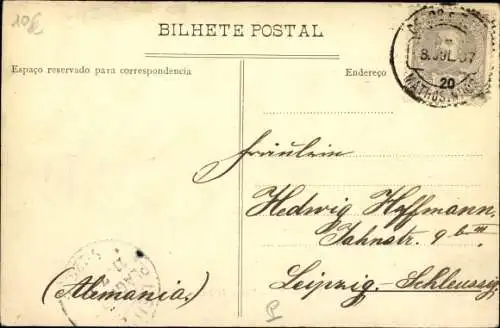 10€
BILHETE POSTAL
Espaço reservado para correspondencia
Endereço
8.JUL.07
20
MATHOSINHOS
Fräulein
Hedwig Hoffmann,
Jahnstr. 9
Leipzig-Schleussig.
(Alemania.)